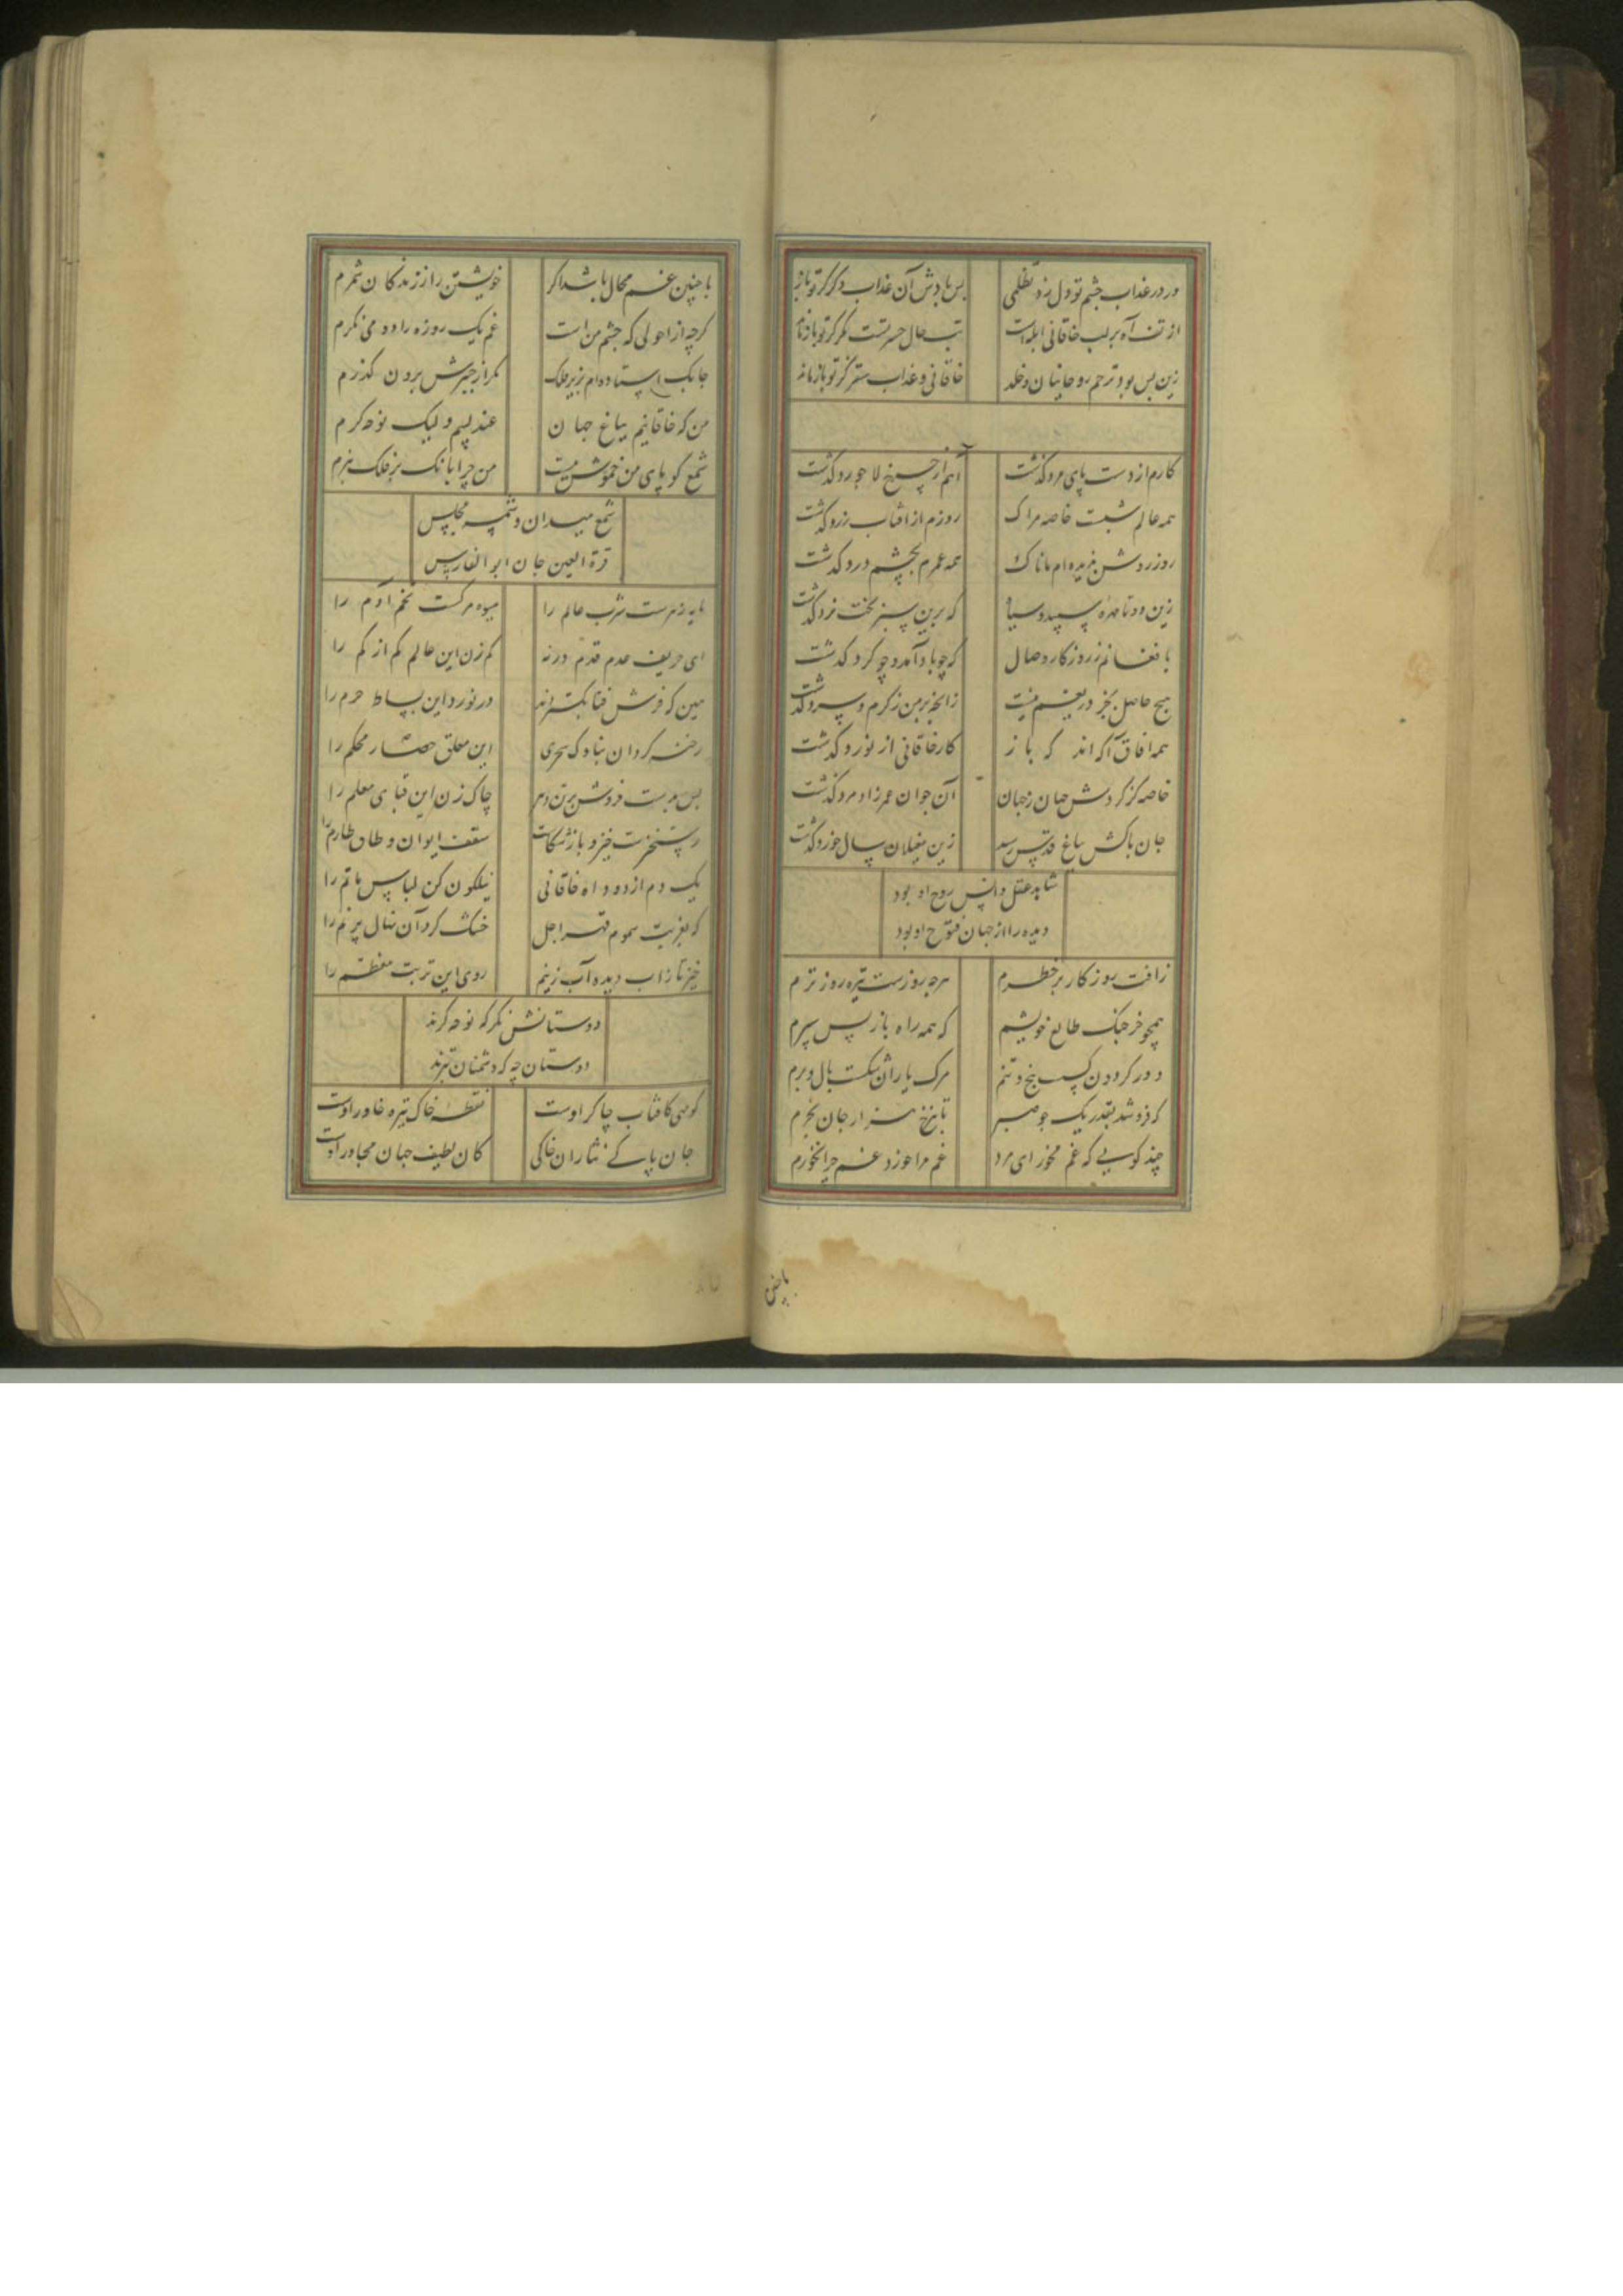 ور در عذاب چشم تو دل زد تظلمی بس بادش آن عذاب دگر کز تو باز
از تف آه بر لب خاقانی آبله است تب حال حسرتست مگر کز تو باز ماند
زین بس بود ترحم روحانیان و خلد خاقانی و عذاب سقر کز تو باز ماند
کارم از دست پای مرد گذشت آهم از چرخ لاجورد گذشت
همه عالم شبست خاصه مراک روزم از افتاب زرد گذشت
روز روشن ندیده ام ماناک همه عمرم بچشم درد گذشت
زین دو تا مهره سپید و سیاه که برین سبز تخت نرد گذشت
با فغانم ز روزگار وصال که چو باد آمد و چو گرد گذشت
هیچ حاصل بجز دریغم نیست زانچه بر من ز گرم و سرد گذشت
همه افاق آگه اند که باز کار خاقانی از نورد گذشت
خاصه کز گردش جهان ز جهان آن جوان عمر زاد مرد گذشت
جان پاکش بباغ قدس رسید زین مغیلان سال خورد گذشت
شاهد عقل و انس روح او بود
دیده را از جهان فتوح او بود
زافت روزگار بر خطرم هر چه روزست تیره روز ترم
همچو خرچنگ طالع خویشم که همه راه باز پس سپرم
دور گردون گسست بیخ و تنم مرگ یاران شکست بال و برم
گر فروشد بقدر یک جو صبر تا بنرخ هزار جان بخرم
چند گویی که غم مخور ای مرد غم مرا خورد غم چرا نخورم
با چنین
با چنین غم محال باشد اگر خویشتن را ز زندگان شمرم
گرچه از احولی که چشم من است غم یک روزه را دو می نگرم
جابک استاده ام بزیر فلک مگر از چنبرش برون گذرم
من که خاقانیم بباغ جهان عندلیبم ولیک نوحه گرم
شمع گویای من خموش نشست من چرا بانگ بر فلک نبرم
شمع میدان و شمسه مجلس
قرة العین جان ابو الفارس
مایه زهرست شرب عالم را میوه مرگست تخم آدم را
ای حریف عدم قدم درنه کم زن این عالم کم از کم را
هین که فرش فنا بگستردند در نورد این بساط خرم را
رخنه گردان بناوک سحری این معلق حصار محکم را
بس مر بست فروش بر تن دهر چاک زن این قبای معلم را
رستخیزست خیز و باز شکاف سقف ایوان و طاق طارم را
یک دم از دود آه خاقانی نیلگون کن لباس ماتم را
که بغربت سموم قهر اجل خشک کرد آن نهال پر نم را
خیز تا زاب دیده آب زنیم روی این تربت معظم را
دوستانش نگر که نوحه گرند
دوستان چه که دشمنان بترند
گوهری کافتاب چاکر اوست نقطه خاک تیره خاور اوست
جان پاک نثاران خاکی کان لطیف جهان مجاور اوست